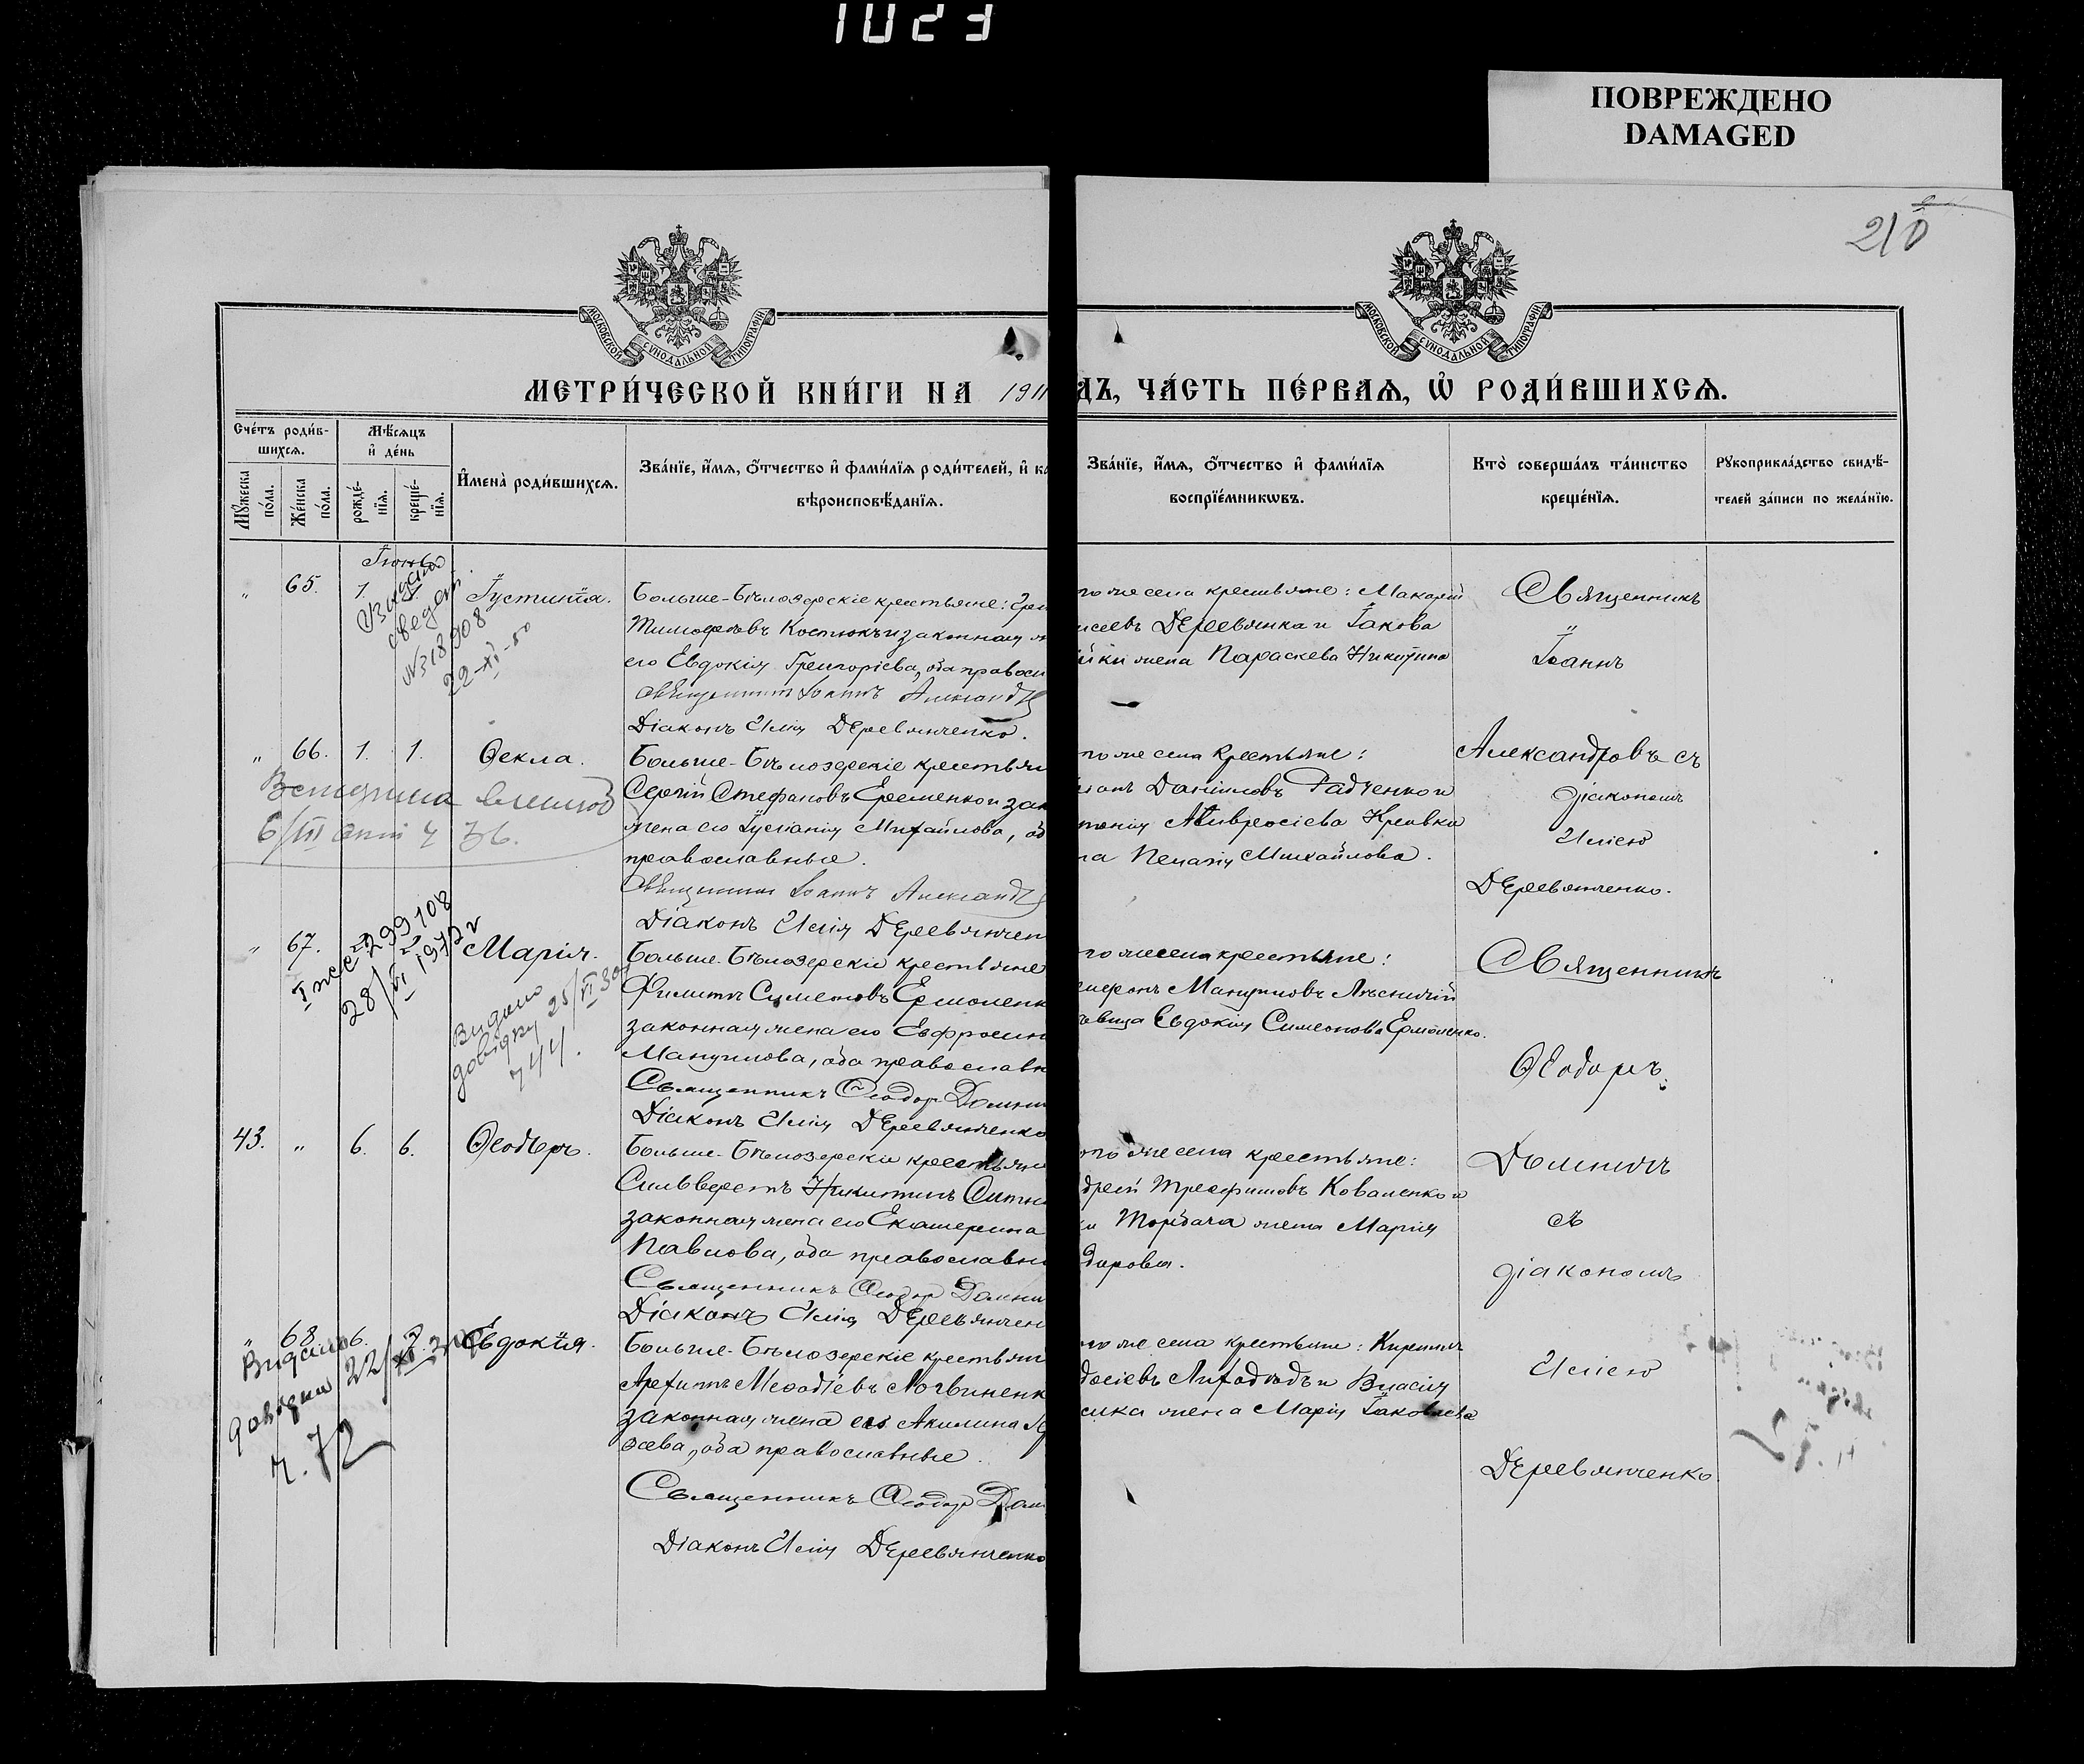 1023
ПОВРЕЖДЕНО
DAMAGED
210
МОСКОВСКОЙ СѴНОДАЛЬНОЙ ТИПОГРАФІИ
МОСКОВСКОЙ СѴНОДАЛЬНОЙ ТИПОГРАФІИ
МЕТРИ́ЧЕСКОЙ КНИ́ГИ НА 1911
ДЪ, ЧА́СТЬ ПЕ́РВАѦ, Ѡ҆ РОДИ́ВШИХСѦ.
Сче́тъ роди́в-
шихсѧ.
Мꙋ́жеска
по́ла.
Же́нска
по́ла.
Мѣ́сѧцъ
и҆ де́нь
рожде́-
нїѧ.
креще́-
нїѧ.
И҆мена̀ роди́вшихсѧ.
Зва́нїе, и҆́мѧ, ѻ҆́тчество и҆ фами́лїѧ роди́телей, и҆ ко
вѣроисповѣ́данїѧ.
Зва́нїе, и҆́мѧ, ѻ҆́тчество и҆ фами́лїѧ
воспрїе́мникѡвъ.
Кто̀ соверша́лъ та́инство
креще́нїѧ.
Рꙋкоприкла́дство свидѣ́-
телей за́писи по жела́нїю.
Іюнь
" 65. 1. Іустинія.
№318908
22-XI-50
Больше-Бѣлозерскіе крестьяне:
Тимофеевъ Костюкъ и законная
его Евдокія Григоріева, оба правосл
Священникъ Іоаннъ Александ
Діаконъ Илія Деревянченко.
го же села крестьяне: Макарій
исеевъ Деревянка и Іакова
йки жена Параскева Никитина
Священникъ
Іоаннъ
" 66. 1. 1. Ѳекла.
6/III 36.
Больше-Бѣлозерскіе крестьян
Сергій Стефановъ Еременко и зак
жена его Іуліанія Михайлова, об
православные.
Священникъ Іоаннъ Александ
Діаконъ Илія Деревянчен
го же села крестьяне:
Даніиловъ Радченко и
Амвросіева Кривка
на Пелагія Михайлова.
Александровъ съ
діакономъ
Иліею
Деревянченко.
" 67. Марія.
299108
28/VI 1972 г
Видано
довідку 25/VI 30
744.
Больше-Бѣлозерскіе крестьяне
Филиппъ Симеоновъ Ермоленк
законная жена его Евфросин
Мануилова, оба православн
Священникъ Ѳеодоръ Домни
Діаконъ Илія Деревянченко
го же села крестьяне:
Мануиловъ Лѣсничій
вица Евдокія Симеонова Ермоленко.
Священникъ
Ѳеодоръ
43. " 6. 6. Ѳеодоръ.
Больше-Бѣлозерскіе крестьяне
Сильверстъ Никитинъ Ситни
законная жена его Екатерина
Павлова, оба православны
Священникъ Ѳеодоръ Домни
Діаконъ Илія Деревянчен
ого же села крестьяне:
дрей Трофимовъ Коваленко и
Торбача жена Марія
дорова.
Домнинъ
съ
діакономъ
" 68. 6. Евдокія.
Видано
довідки 22/XI
ч. 72
Больше-Бѣлозерскіе крестьян
Архипъ Меѳодіевъ Логвиненк
законная жена его Акилина
ѳеева, оба православные.
Священникъ Ѳеодоръ Дом
Діаконъ Илія Деревянченко
го же села крестьяне: Кириллъ
досіевъ Лиходѣдъ и Власія
сика жена Марія Іаковлева
Иліею
Деревянченко